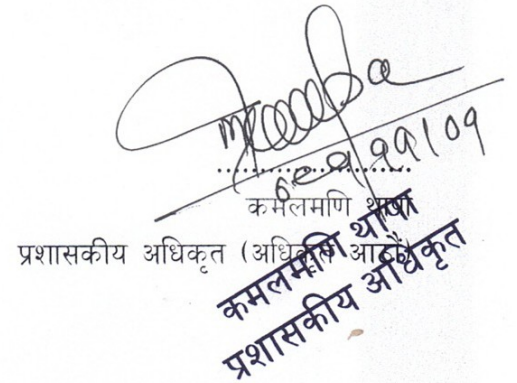 कमलमणि थापा
प्रशासकीय अधिकृत (अधिकृत आठौं)
कमलमणि थापा
प्रशासकीय अधिकृत